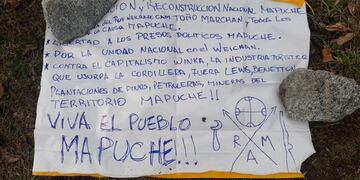 ION, Y RECONSTRUCCIÓN NACIONAL MAPUCHE
TOÑO MARCHAN, TODOS LOS
LA CAUSA MAPUCHE.
LIBERTAD A LOS PRESOS POLITICOS MAPUCHE.
* POR LA UNIDAD NACIONAL en el WEICHAN.
* CONTRA EL CAPITALISMO WINKA, LA INDUSTRIA TURISTICA
QUE USURPA LA CORDILLERA, FUERA LEWIS, BENETTON
PLANTACIONES DE PINOS, PETROLERAS, MINERAS DEL
TERRITORIO MAPUCHE!!
VIVA EL PUEBLO
MAPUCHE!!!
R M
A